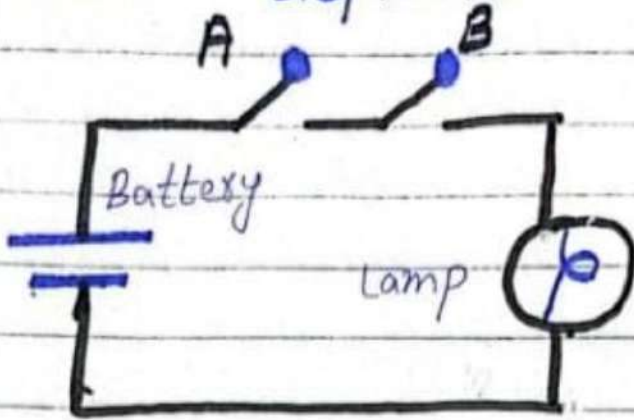 A B
Battery
Lamp